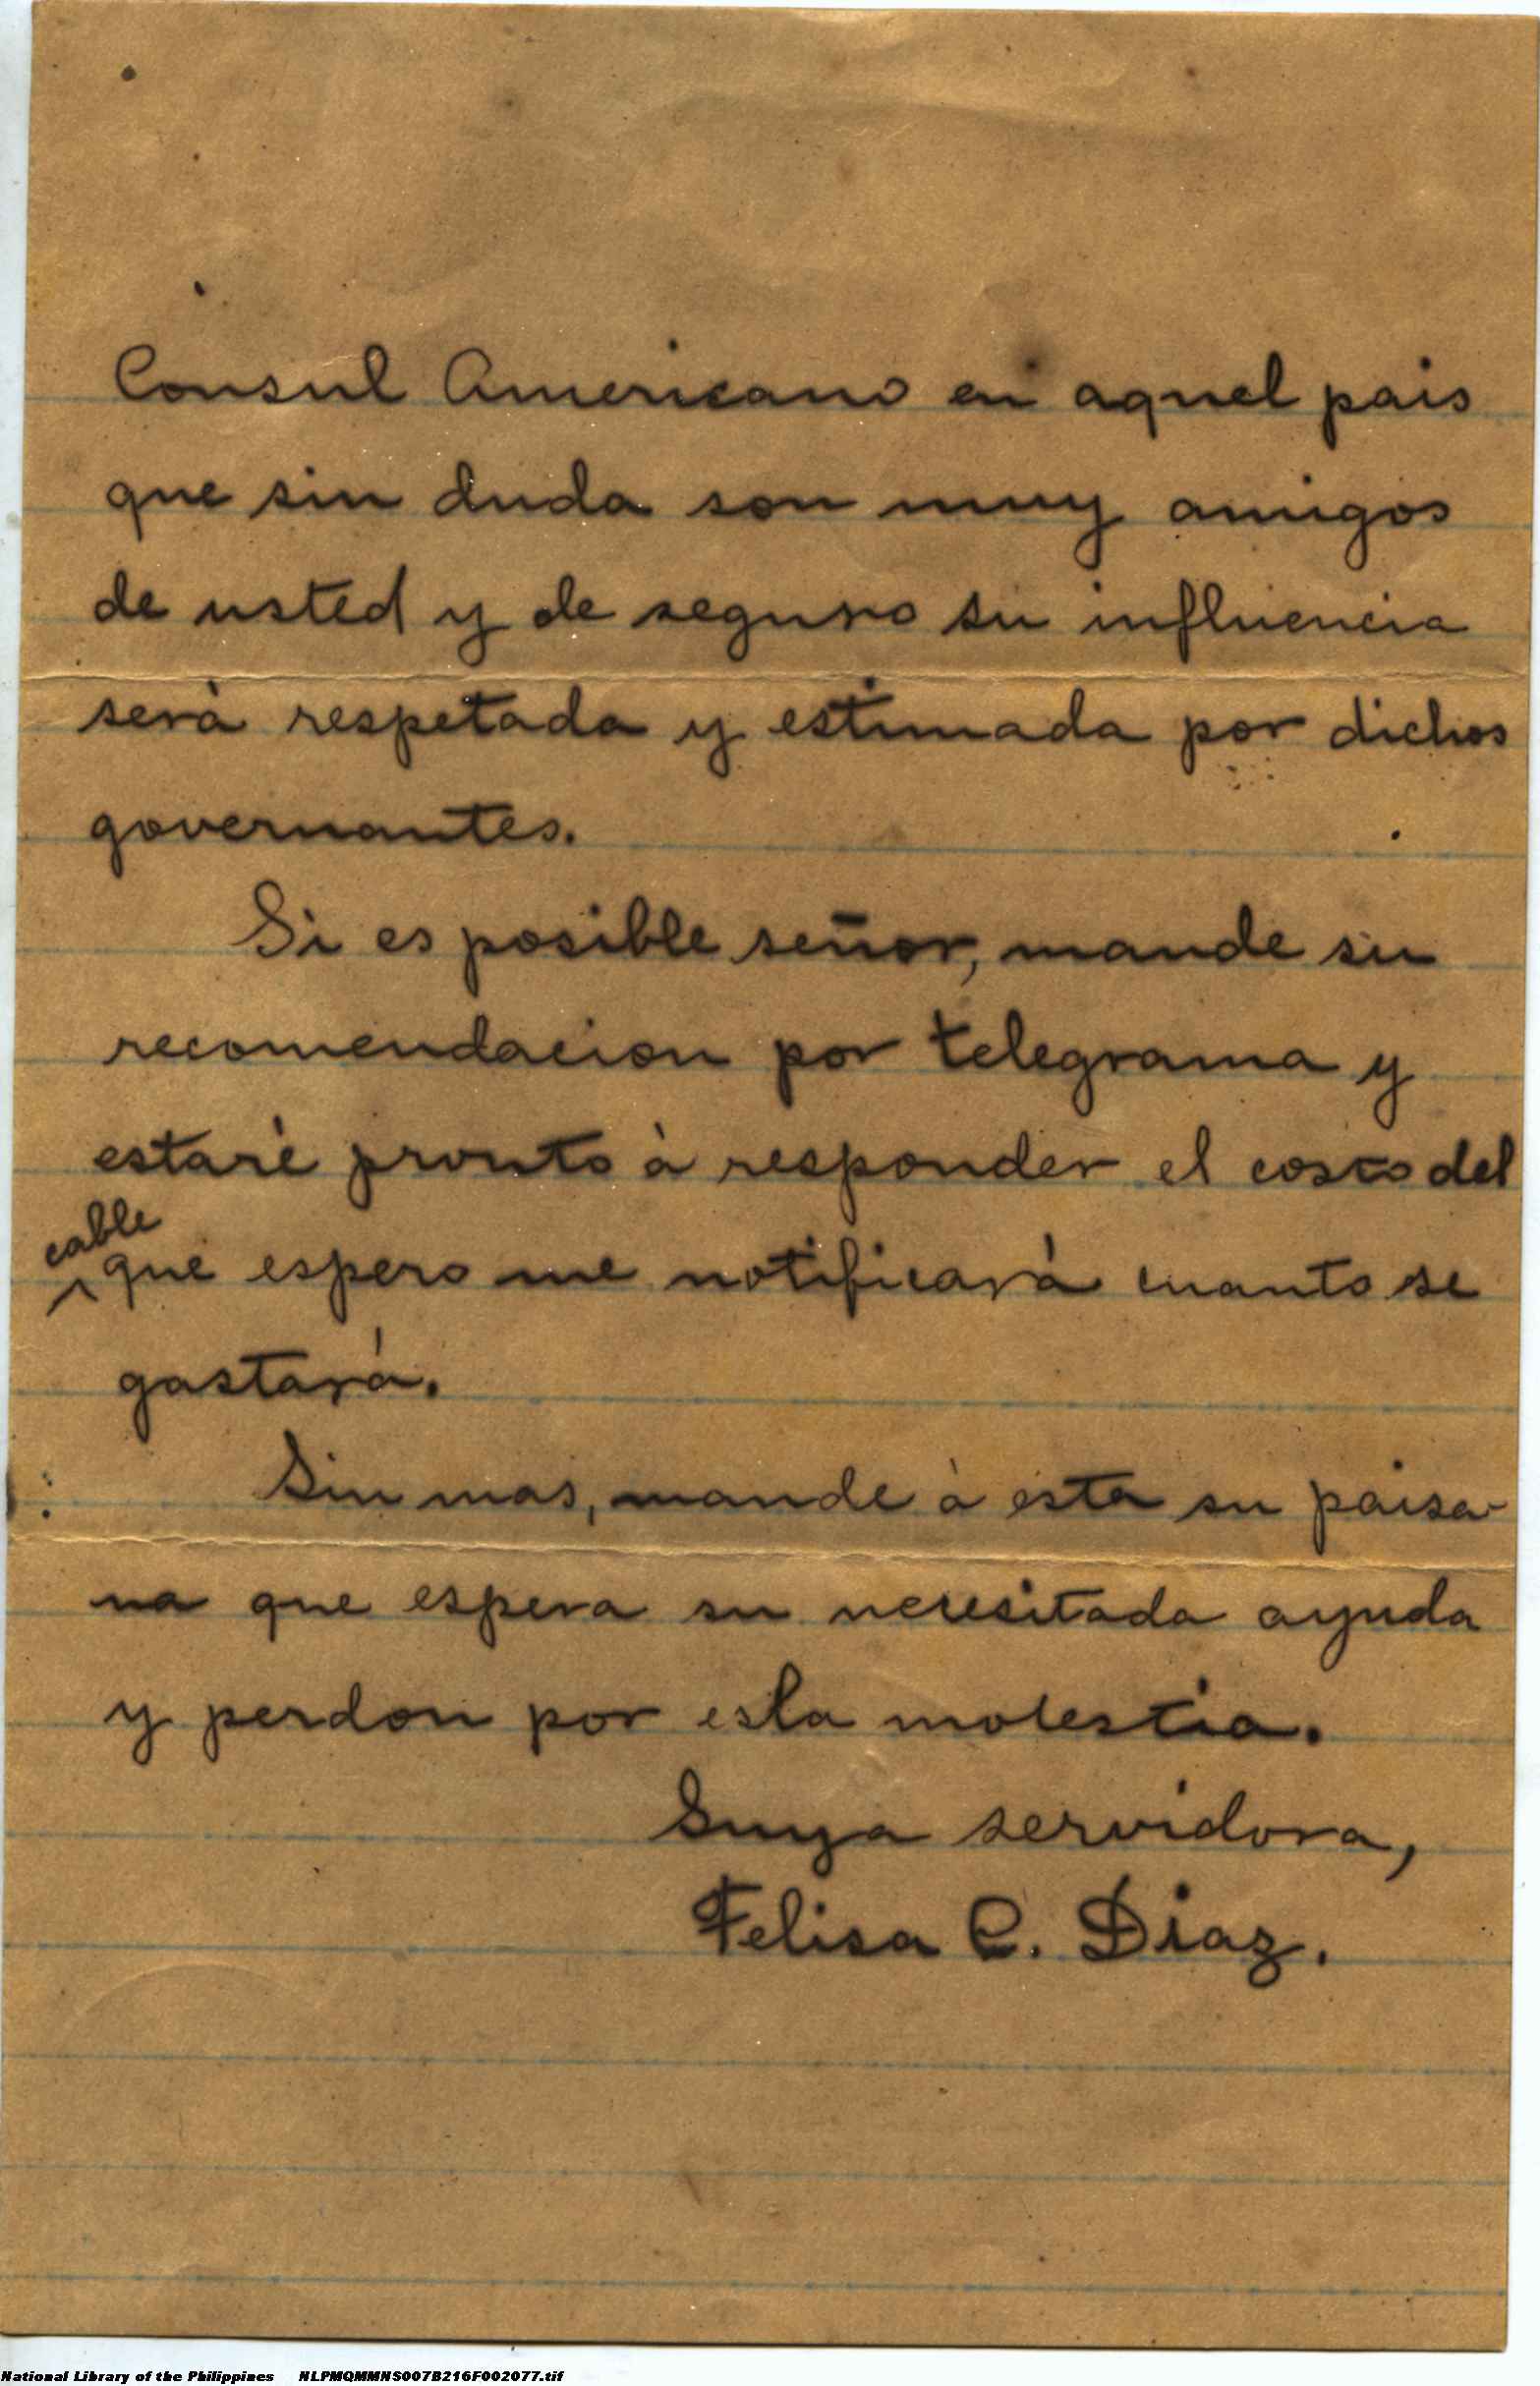 Consul Americano en aquel pais
que sin duda son muy amigos
de usted y de seguro su influencia
será respetada y estimada por dichos
governantes.
Si es posible señor, mande su
recomendacion por telegrama y
estaré pronto à responder el costo del
cable
que espero me notificará cuanto se
gastará.
Sin mas, mande à esta su paisa-
na que espera su necesitada ayuda
y perdon por esta molestia.
Suya servidora,
Felisa C. Diaz.
National Library of the Philippines NLPMQMMNS007B216F002077.tif